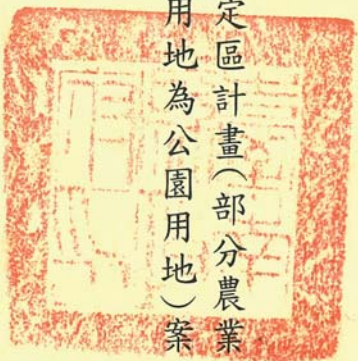 定區計畫(部分農業
用地為公園用地)案